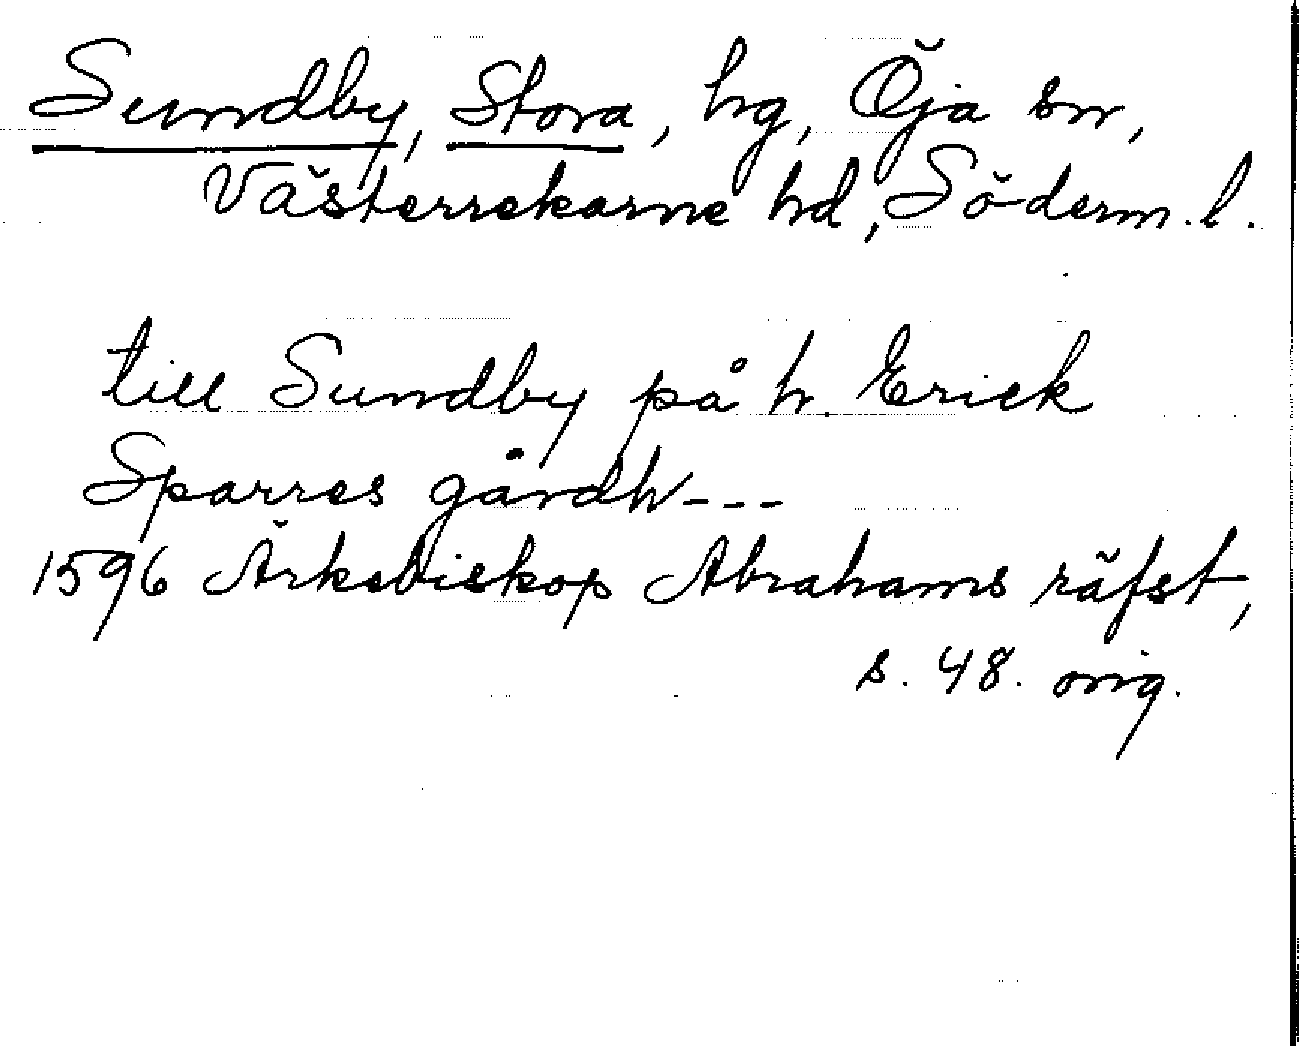 Sundby, Stora, hg, Öja sn,
Västerrekarne hd, Söderm. l.
till Sundby på h. Erick
Sparres gårdh---
1596 Ärkebiskop Abrahams räfst,
s. 48. orig.